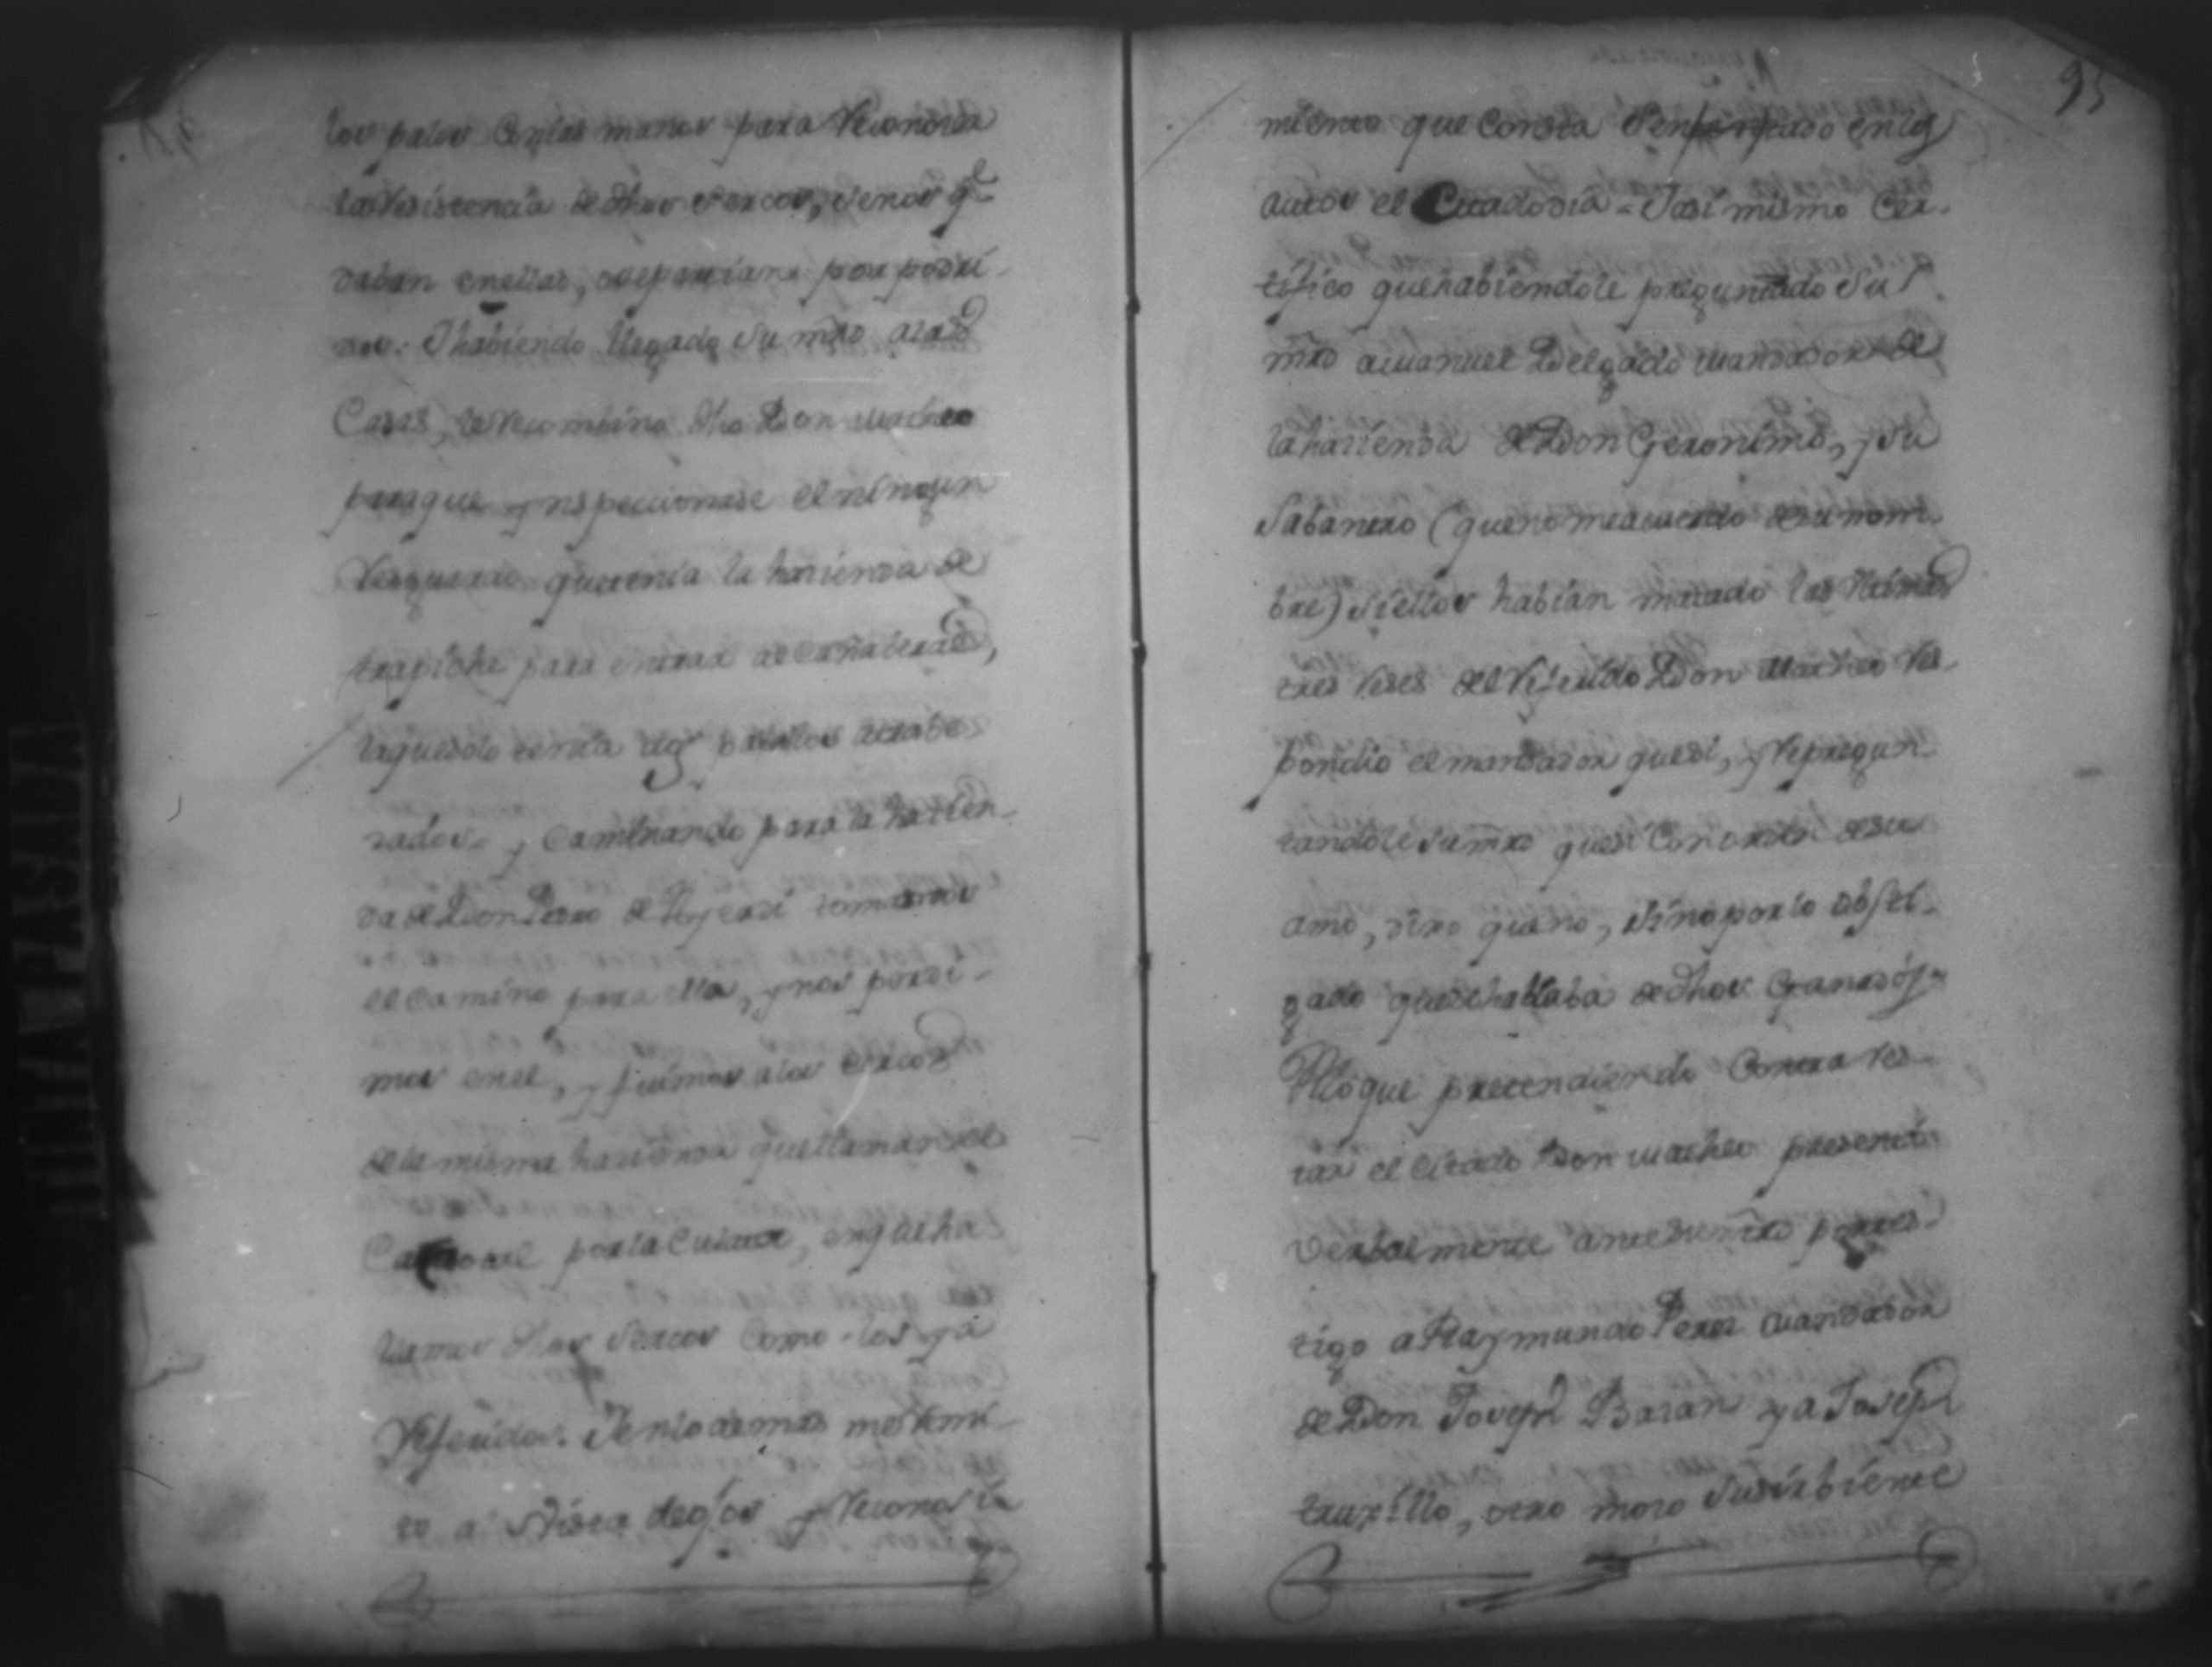 los palos con las manos para reconoser
la resistencia de dhos sercos, senos q.e
daban en ellas, o se partian por podri-
dos. Y habiendo llegado su mrd a las
Casas, le recombino dho Don Matheo
para que ynspeccionase el ningun
resguardo que tenia la hazienda de
trapiche para entrar al cañaberal,
la que solo tenia dos palillos
rados - y caminando para la hazien-
da de Don Pedro de tomamos
el camino para ella, y nos perdi-
mos en el, y fuimos a los sercos
de la misma hazienda que llaman el
por la Culata, en q.e ha
llamos dhos sercos como los ya
referidos. Y en lo demas me remi-
to a vista de ojos y reconosi
95
miento que consta en los
autos el citado dia - Y asi mismo cer-
tifico que habiendole preguntado su
mrd a Manuel Delgado Mandador de
la hazienda de Don Geronimo, y su
Sabanero (que no me acuerdo de su nom-
bre) si ellos habian matado las mismas
tres reses del referido Don Matheo res-
pondio el mandador que si, y repregun-
tandole su mrd que si con orden de su
amo, dixo que no, sino por lo obsti-
gado que se hallaba de dhos Ganados
Y lo que pretendiendo contra res-
tar el citado Don Matheo presentó
verbalmente ante su mrd por tes-
tigo a Raymundo Perez Mandador
de Don Joseph Bazan y a Joseph
truxillo, otro moso susirbiente